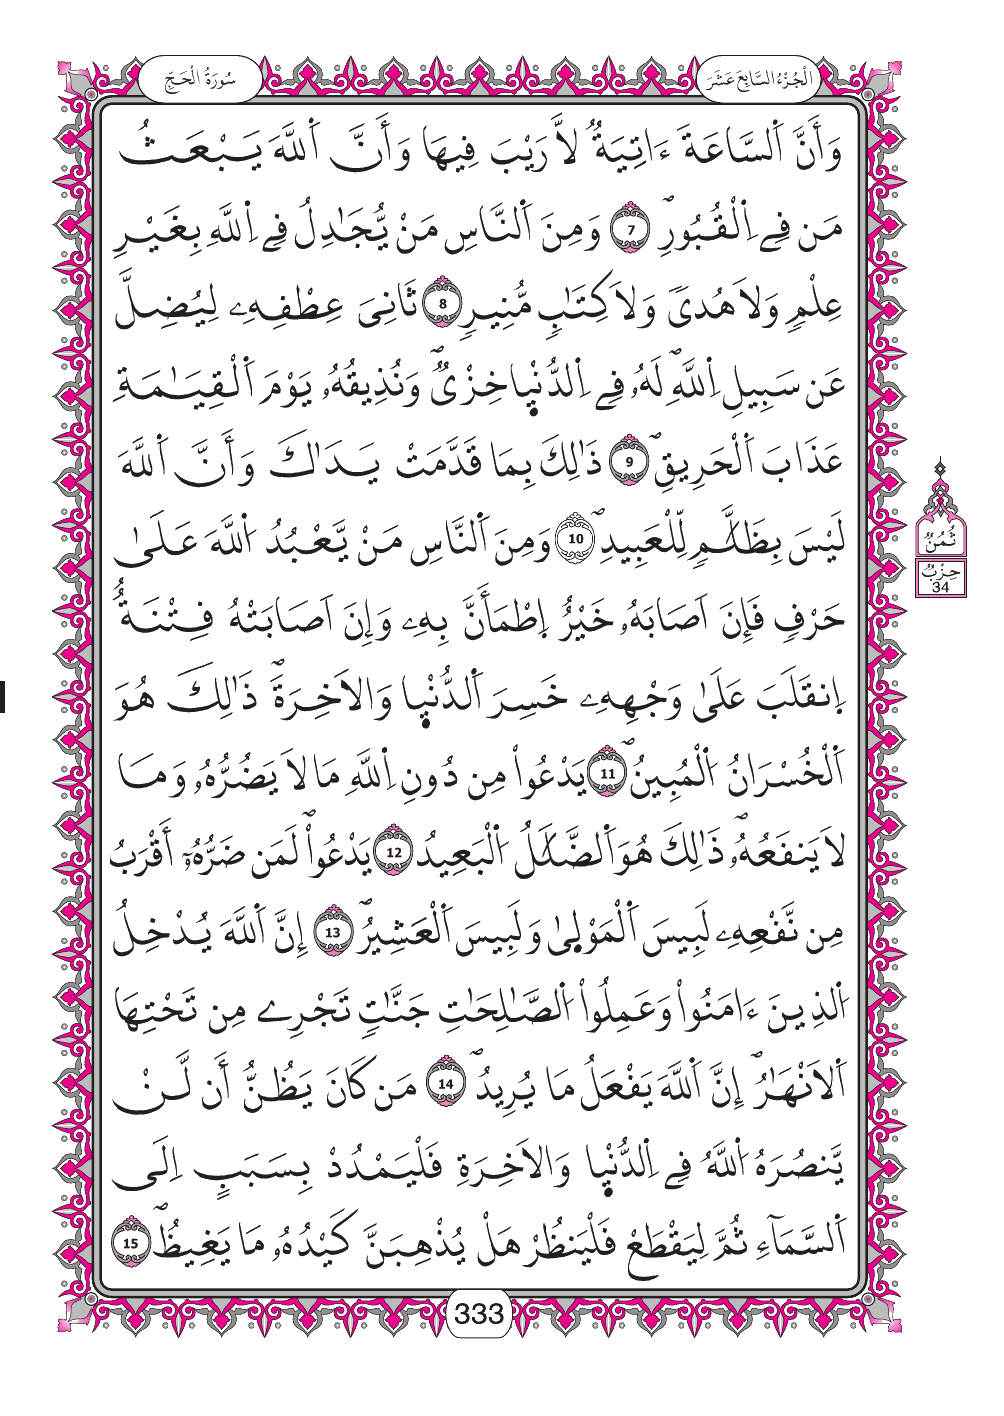 الْجُزْءُ السَّابِعَ عَشَرَ
سُورَةُ الْحَجِّ
وَأَنَّ اَ۬لسَّاعَةَ ءَاتِيَةٞ لَّا رَيْبَ فِيهَا وَأَنَّ اَ۬للَّهَ يَبْعَثُ
مَن فِے اِ۬لْقُبُورِۖ 7 وَمِنَ اَ۬لنَّاسِ مَنْ يُّجَٰدِلُ فِے اِ۬للَّهِ بِغَيْرِ
عِلْمٖ وَلَا هُدىٗ وَلَا كِتَٰبٖ مُّنِيرٖ 8 ثَانِيَ عِطْفِهِۦ لِيُضِلَّ
عَن سَبِيلِ اِ۬للَّهِۖ لَهُۥ فِے اِ۬لدُّنْي۪ا خِزْيٞۖ وَنُذِيقُهُۥ يَوْمَ اَ۬لْقِيَٰمَةِ
عَذَابَ اَ۬لْحَرِيقِۖ 9 ذَٰلِكَ بِمَا قَدَّمَتْ يَدَٰكَ وَأَنَّ اَ۬للَّهَ
لَيْسَ بِظَلَّٰمٖ لِّلْعَبِيدِۖ 10 وَمِنَ اَ۬لنَّاسِ مَنْ يَّعْبُدُ اُ۬للَّهَ عَلَىٰ
حَرْفٖ فَإِنَ اَصَابَهُۥ خَيْرٌ اِ۪طْمَأَنَّ بِهِۦ وَإِنَ اَصَابَتْهُ فِتْنَةٌ
اِ۪نقَلَبَ عَلَىٰ وَجْهِهِۦ خَسِرَ اَ۬لدُّنْي۪ا وَالَاخِرَةَۖ ذَٰلِكَ هُوَ
اَ۬لْخُسْرَانُ اُ۬لْمُبِينُۖ 11 يَدْعُواْ مِن دُونِ اِ۬للَّهِ مَا لَا يَضُرُّهُۥ وَمَا
لَا يَنفَعُهُۥۖ ذَٰلِكَ هُوَ اَ۬لضَّلَٰلُ اُ۬لْبَعِيدُ 12 يَدْعُواْۖ لَمَن ضَرُّهُۥٓ أَقْرَبُ
مِن نَّفْعِهِۦ لَبِيسَ اَ۬لْمَوْل۪يٰ وَلَبِيسَ اَ۬لْعَشِيرُۖ 13 إِنَّ اَ۬للَّهَ يُدْخِلُ
اُ۬لذِينَ ءَامَنُواْ وَعَمِلُواْ اُ۬لصَّٰلِحَٰتِ جَنَّٰتٖ تَجْرِے مِن تَحْتِهَا
اَ۬لَانْهَٰرُۖ إِنَّ اَ۬للَّهَ يَفْعَلُ مَا يُرِيدُۖ 14 مَن كَانَ يَظُنُّ أَن لَّنْ
يَّنصُرَهُ اُ۬للَّهُ فِے اِ۬لدُّنْي۪ا وَالَاخِرَةِ فَلْيَمْدُدْ بِسَبَبٍ اِلَى
اَ۬لسَّمَآءِ ثُمَّ لِيَقْطَعْ فَلْيَنظُرْ هَلْ يُذْهِبَنَّ كَيْدُهُۥ مَا يَغِيظُۖ 15
ثُمُنٌ
حِزْبٌ
34
333